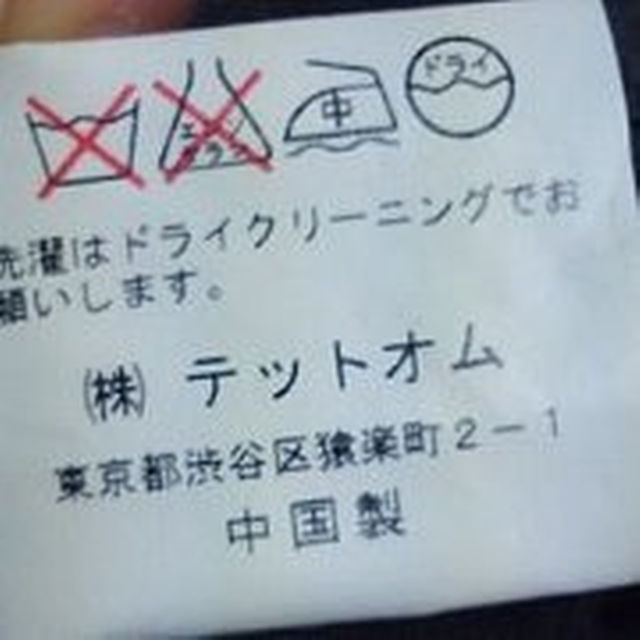 エンソ サラシ 中 ドライ
洗濯はドライクリーニングでお
願いします。
㈱ テットオム
東京都渋谷区猿楽町2-1
中国製